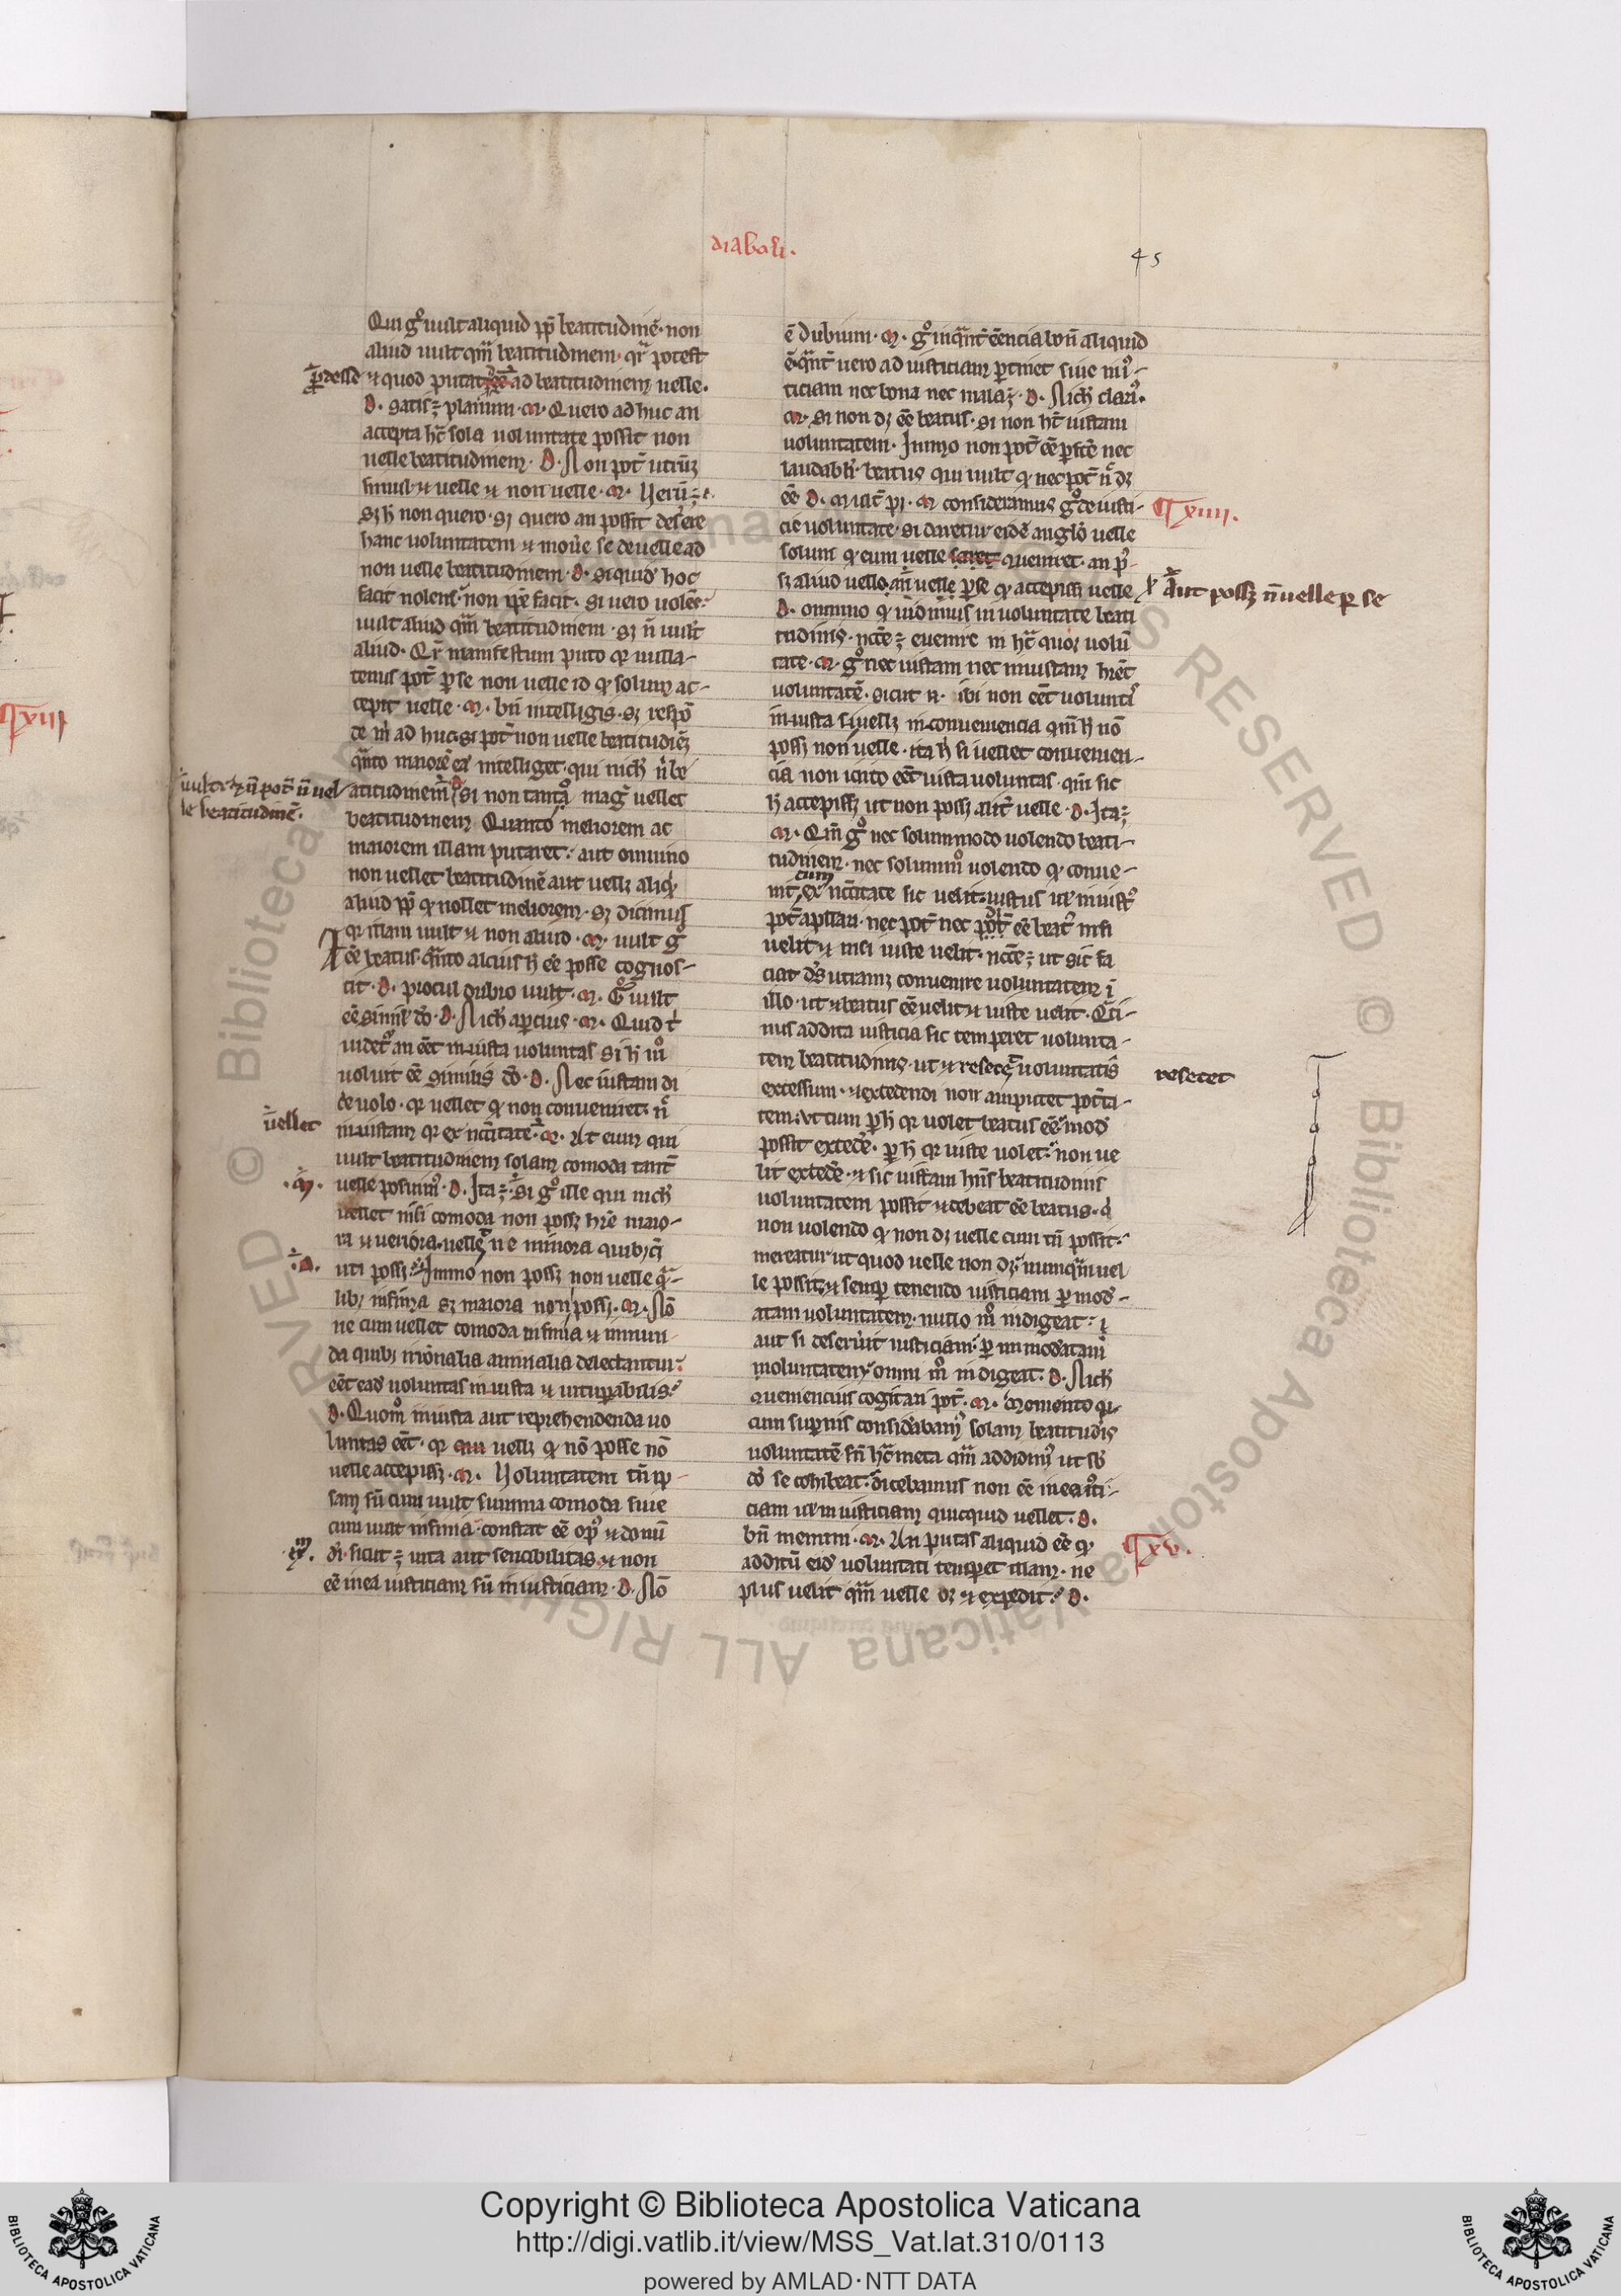 diaboli.
45
Qui gͦ uult aliquid pp̄ beatitudinē· non
aliud uult qm̄ beatitudinem· qr̄ potest
ꝑdesse
⁊ quod putat ꝑ eē ad beatitudinem uelle·
D· satis ÷ planum· M· Quero ad huc an
accepta hc̄ sola uoluntate possit non
uelle beatitudinem· D· Non pot̄ utrūqꝫ
simul ⁊ uelle ⁊ non uelle· M· Verū ÷·
Sꝫ h̄ non quero· sꝫ quero an possit des̄ere
hanc uoluntatem ⁊ mouē se de uelle ad
non uelle beatitudinem· D· si quid' hoc
facit nolens· non ip̄e facit· si uero uolēs·
uult aliud qm̄ beatitudinem· sꝫ n̄ uult
aliud· Qr̄ manifestum puto qꝛ nulla-
tenus pot̄ ꝑ se non uelle id qͩ solum ac-
cepit uelle· M· bn̄ intelligis· sꝫ respō
de m̄ ad huc· si pot̄ non uelle beatitudinē
qn̄to maiorē eā intelliget· qui nich̄ n̄ be
uult· ⁊ n̄ pot̄ n̄ uel
le beatitudinē·
atitudinem· si non tantͦ magꝭ uellet
beatitudinem Quanto meliorem ac
maiorem illam putaret· aut omnino
non uellet beatitudinē aut uellꝫ aliqͩ
aliud pp̄ qͩ nollet meliorem· sꝫ dicimus
qꝛ illam uult ⁊ non aliud· M· uult gͦ
eē beatus· qn̄to alcius h̄ eē posse cognos-
cit· D· procul dubio uult· M· Gͦ uult
eē similꝭ dō· D· Nich̄ apertius· M· Quid t̄
uidet̄ an eēt in iusta uoluntas si h̄ mͦ
uoluit eē similis dō· D· Nec iustam di
uellet
ce uolo· qꝛ uellet qͩ non conueniret· n̄
iniustam qꝛ ex nc̄citate· M· At eum qui
uult beatitudinem solam comoda tant̄
·M·
uelle posuimͦ· D· Ita ÷· Si gͦ ille qui nich̄
uellet nisi comoda non possꝫ hr̄e maio-
ra ⁊ ueriora· uellet ne minora quibꝫcͥ
·D·
uti possꝫ· Immo non possꝫ non uelle qͣ-
libꝫ infima sꝫ maiora non possꝫ· M· Nō
ne cum uellet comoda infima ⁊ immun-
da quibꝫ irrōnalia animalia delectantur·
eēt ead' uoluntas in iusta ⁊ uituꝑabilis·
D· Quomͦ iniusta aut reprehendenda uo
luntas eēt· qꝛ qui uellꝫ qͩ nō posse nō
uelle accepissꝫ· M· Voluntatem tn̄ ip-
sam siū cum uult summa comoda siue
cum uult infima· constat eē opͦ ⁊ donū
·M·
dī· sicut ÷ uita aut sencibilitas· ⁊ non
eē in ea iusticiam siū iniusticiam· D· Nō
ē dubium· M· gͦ inqͣnt̄ eēncia bon̄ aliquid
ē· qͣnt̄ uero ad iusticiam ꝑtinet siue iniͦ-
ticiam nec bona nec mala ÷· D· Nich̄ clarͦ·
M· Si non dꝫ eē beatus· si non ht̄ iustam
uoluntatem· Immo non pot̄ eē ꝑfc̄e nec
laudabl̄r beatus qui uult qͩ nec pot̄ n̄ dꝫ
eē D· Mult̄ pꝫ· M consideramus gͦ de iusti-
¶ xiiii.
cie uoluntate· si daretur eidē anglō uelle
solum qͩ eum uelle saret conueniret· an pͦ-
sꝫ aliud uelle· an̄ uelle ꝑ se qͩ accepissꝫ uelle
aut possꝫ n̄ uelle per se
D· omnino qͩ uidimus in uoluntate beati
tudinis· nc̄cē ÷ euenire in hc̄ quoqꝫ uolū
tate· M· gͦ nec iustam nec iniustam hr̄et
uoluntatē· sicut n̄· ibi non eēt uoluntᷓs
in iusta si uellꝫ in conueniencia qm̄ h̄ nō
possꝫ non uelle· ita h̄ si uellet conuenien-
cia non icirco eēt iusta uoluntas· qm̄ sic
h̄ accepissꝫ ut non possꝫ alit̄ uelle· D· Ita ÷
M· Qm̄ gͦ nec solummodo uolendo beati-
tudinem· nec solummͦ uolendo qͩ conue-
cum
nit, ex nc̄citate sic uelit· iustus ul̄ iniustͦ
pot̄ apllari· nec pot̄ nec pot̄ eē beatͦ nisi
uelit ⁊ nisi iuste uelit· nc̄cē ÷ ut sic fa
ciat dꝰs utramqꝫ conuenire uoluntatem ī
illo· ut ⁊ beatus eē uelit ⁊ iuste uelit· Qͣti-
nus addita iusticia sic temperet uolunta-
tem beatitudinis· ut ⁊ resecet uoluntatis
resecet
excessum· ⁊ excedendi non amputet potͣta-
tem· Vt cum ꝑ h̄ qꝛ uolet beatus eē· mod'
possit excedē· ꝑ h̄ qꝛ iuste uolet· non ue
lit excedē· ⁊ sic iustam hn̄s beatitudinis
uoluntatem possit ⁊ debeat eē beatus· qͥ
non uolendo qͩ non dꝫ uelle cum tn̄ possit·
mereatur ut quod uelle non dꝫ· numqͣm uel
le possit· ⁊ semꝑ tenendo iusticiam ꝑ mod'-
atam uoluntatem· nullo mͦ indigeat· ī
aut si deseruit iusticiam· ꝑ immod'atam
uoluntatem· omni mͦ indigeat· D· Nich̄
quenientius cogitari pot̄· M· Momento qꝛ
cum supͥus consid'abamͦ solam beatitudīs
uoluntatē sn̄ hc̄ meta qm̄ addidimͦ ut sb'
dō se cohibeat· dicebamus non eē in ea iͦti-
ciam ul̄ iniusticiam quicquid uellet· D·
bn̄ memini· M· An putas aliquid eē qͩ
¶ xv.
additū eid' uoluntati temꝑet illam· ne
plus uelit qm̄ uelle dꝫ ⁊ expedit· D·
Copyright © Biblioteca Apostolica Vaticana
http://digi.vatlib.it/view/MSS_Vat.lat.310/0113
powered by AMLAD·NTT DATA
BIBLIOTECA APOSTOLICA VATICANA
BIBLIOTECA APOSTOLICA VATICANA